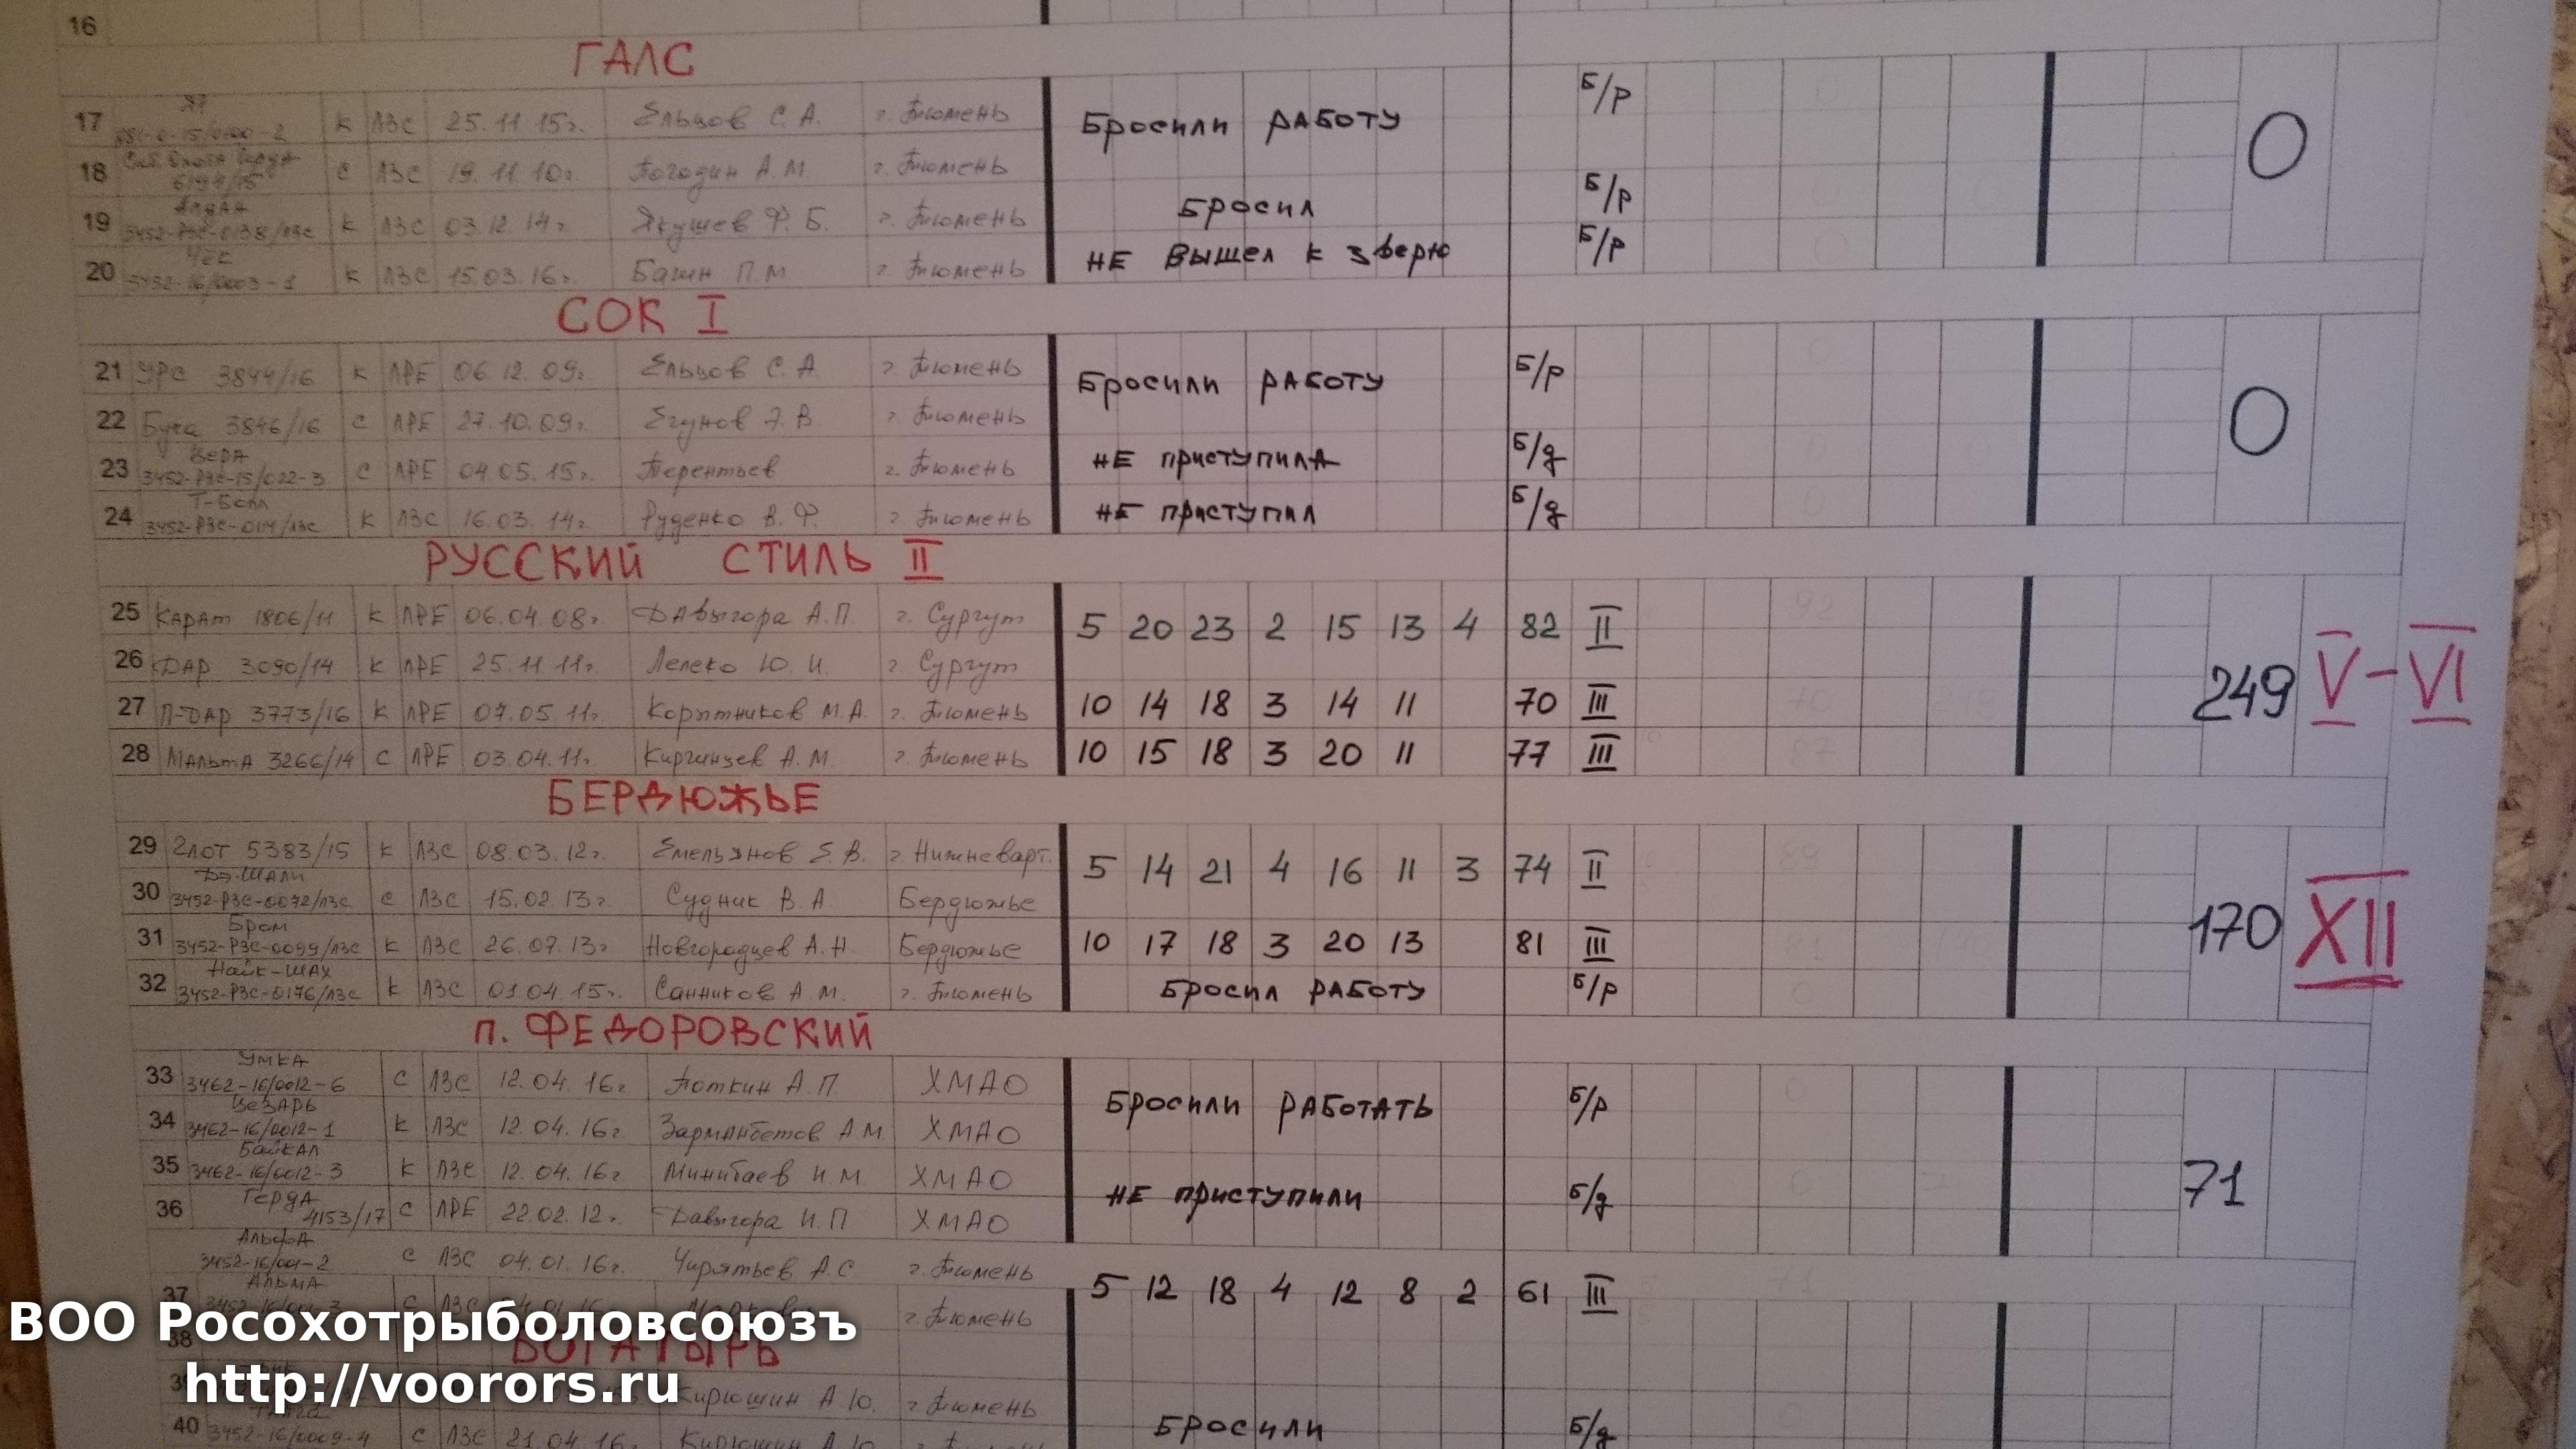 16
ГАЛС
17 К ЛЗС 25.11.15г. Ельцов С.А. г. Тюмень Бросили работу Б/р 0
18 6194/15 С ЛЗС 19.11.10г. Погодин А.М г. Тюмень
19 Алдан 3452-РЗС-0138/ЛЗС К ЛЗС 03.12.14г Якушев Ф.Б. г. Тюмень Бросил Б/р
20 Чек 3452-16/0003-1 К ЛЗС 15.03.16г. Багин П.М г. Тюмень не вышел к зверю Б/р
СОК I
21 Урс 3844/16 К ЛРЕ 06.12.09г. Ельцов С.А г. Тюмень Бросили работу Б/р 0
22 3846/16 С ЛРЕ 27.10.09г. Егунов Э.В г. Тюмень
23 Вера 3452-РЗС-15/022-3 С ЛРЕ 04.05.15г. Терентьев г. Тюмень не приступила Б/д
24 3452-РЗС-0114/ЛЗС К ЛЗС 16.03.14г Руденко В.Ф. г. Тюмень не приступил Б/д
РУССКИЙ СТИЛЬ II
25 Карат 1806/11 К ЛРЕ 06.04.08г. Давыгора А.П. г. Сургут 5 20 23 2 15 13 4 82 II 249 V-VI
26 Дар 3090/14 К ЛРЕ 25.11.11г. Лелеко Ю.И. г. Сургут
27 П-Дар 3773/16 К ЛРЕ 07.05.11г. Корытников М.А. г. Тюмень 10 14 18 3 14 11 70 III
28 Мальта 3266/14 С ЛРЕ 03.04.11г. Киргинцев А.М. г. Тюмень 10 15 18 3 20 11 77 III
БЕРДЮЖЬЕ
29 5383/15 К ЛЗС 08.03.12г. Емельянов Е.В. г. Нижневарт. 5 14 21 4 16 11 3 74 II 170 XII
30 Дэ-Шали 3452-РЗС-0072/ЛЗС С ЛЗС 15.02.13г Судник В.А. Бердюжье
31 Бром 3452-РЗС-0099/ЛЗС К ЛЗС 26.07.13г Новгородцев А.Н. Бердюжье 10 17 18 3 20 13 81 III
32 Найк-Шах 3452-РЗС-0176/ЛЗС К ЛЗС 01.04.15г. Санников А.М. г. Тюмень Бросил работу Б/р
п. ФЕДОРОВСКИЙ
33 Умка 3462-16/0012-6 С ЛЗС 12.04.16г Поткин А.П ХМАО Бросили работать Б/р 71
34 Цезарь 3462-16/0012-1 К ЛЗС 12.04.16г Зарманбетов А.М. ХМАО
35 Байкал 3462-16/0012-3 К ЛЗС 12.04.16г Минибаев И.М. ХМАО не приступили Б/д
36 Герда 4153/17 С ЛРЕ 22.02.12г. Давыгора И.П ХМАО
Альфа 3452-16/001-2 С ЛЗС 04.01.16г. Чирятьев А.С. г. Тюмень 5 12 18 4 12 8 2 61 III
37 Альма С ЛЗС г. Тюмень
38 БОГАТЫРЬ
Кирюшин А.Ю. г. Тюмень
40 3452-16/0009-4 С ЛЗС 21.04.16г. Кирюшин А.Ю. Бросили Б/д
ВОО Росохотрыболовсоюзъ
http://voorors.ru